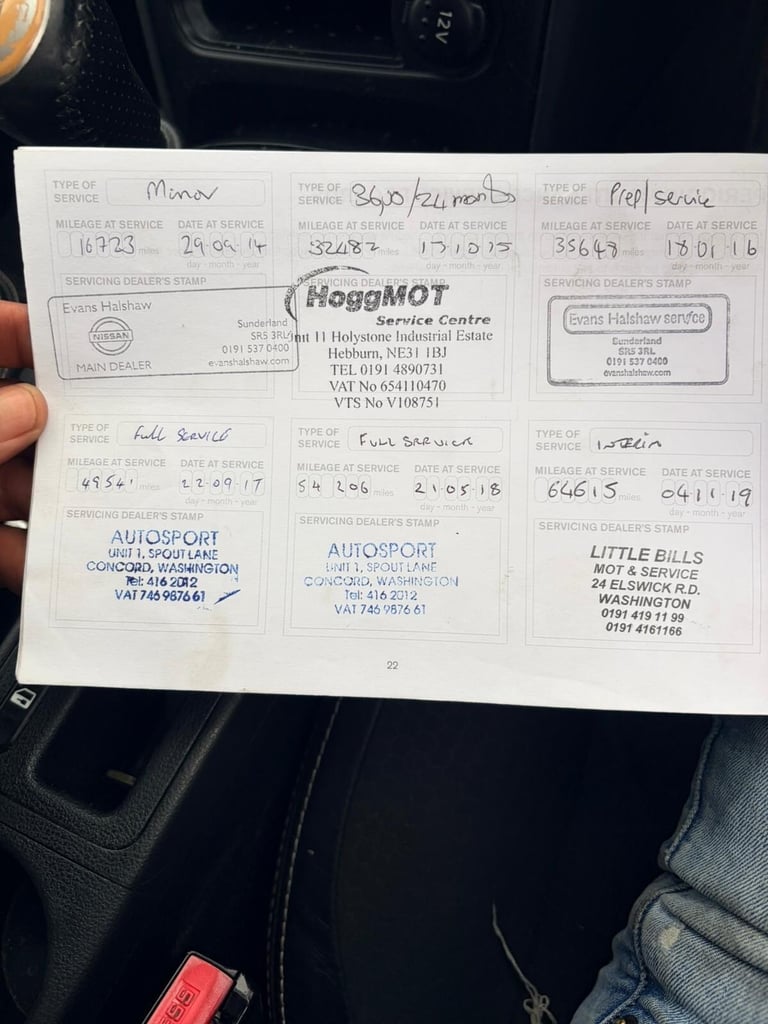 12V
TYPE OF SERVICE Minor
MILEAGE AT SERVICE DATE AT SERVICE
16723 miles 29·09·14
day - month - year
SERVICING DEALER'S STAMP
Evans Halshaw
NISSAN
Sunderland
SR5 3RL
0191 537 0400
MAIN DEALER evanshalshaw.com
TYPE OF SERVICE /24 months
MILEAGE AT SERVICE DATE AT SERVICE
32482 miles
day - month - year
SERVICING DEALER'S STAMP
HoggMOT
Service Centre
Unit 11 Holystone Industrial Estate
Hebburn, NE31 1BJ
TEL 0191 4890731
VAT No 654110470
VTS No V108751
TYPE OF SERVICE Prep/service
MILEAGE AT SERVICE DATE AT SERVICE
35648 miles 18·01·16
day - month - year
SERVICING DEALER'S STAMP
Evans Halshaw service
Sunderland
SR5 3RL
0191 537 0400
evanshalshaw.com
TYPE OF SERVICE FULL SERVICE
MILEAGE AT SERVICE DATE AT SERVICE
49541 miles 22·09·17
day - month - year
SERVICING DEALER'S STAMP
AUTOSPORT
UNIT 1, SPOUT LANE
CONCORD, WASHINGTON
Tel: 416 2012
VAT 746 9876 61
TYPE OF SERVICE FULL SERVICE
MILEAGE AT SERVICE DATE AT SERVICE
54206 miles 21·05·18
day - month - year
SERVICING DEALER'S STAMP
AUTOSPORT
UNIT 1, SPOUT LANE
CONCORD, WASHINGTON
Tel: 416 2012
VAT 746 9876 61
TYPE OF SERVICE INTERIM
MILEAGE AT SERVICE DATE AT SERVICE
64615 miles 04·11·19
day - month - year
SERVICING DEALER'S STAMP
LITTLE BILLS
MOT & SERVICE
24 ELSWICK R.D.
WASHINGTON
0191 419 11 99
0191 4161166
22